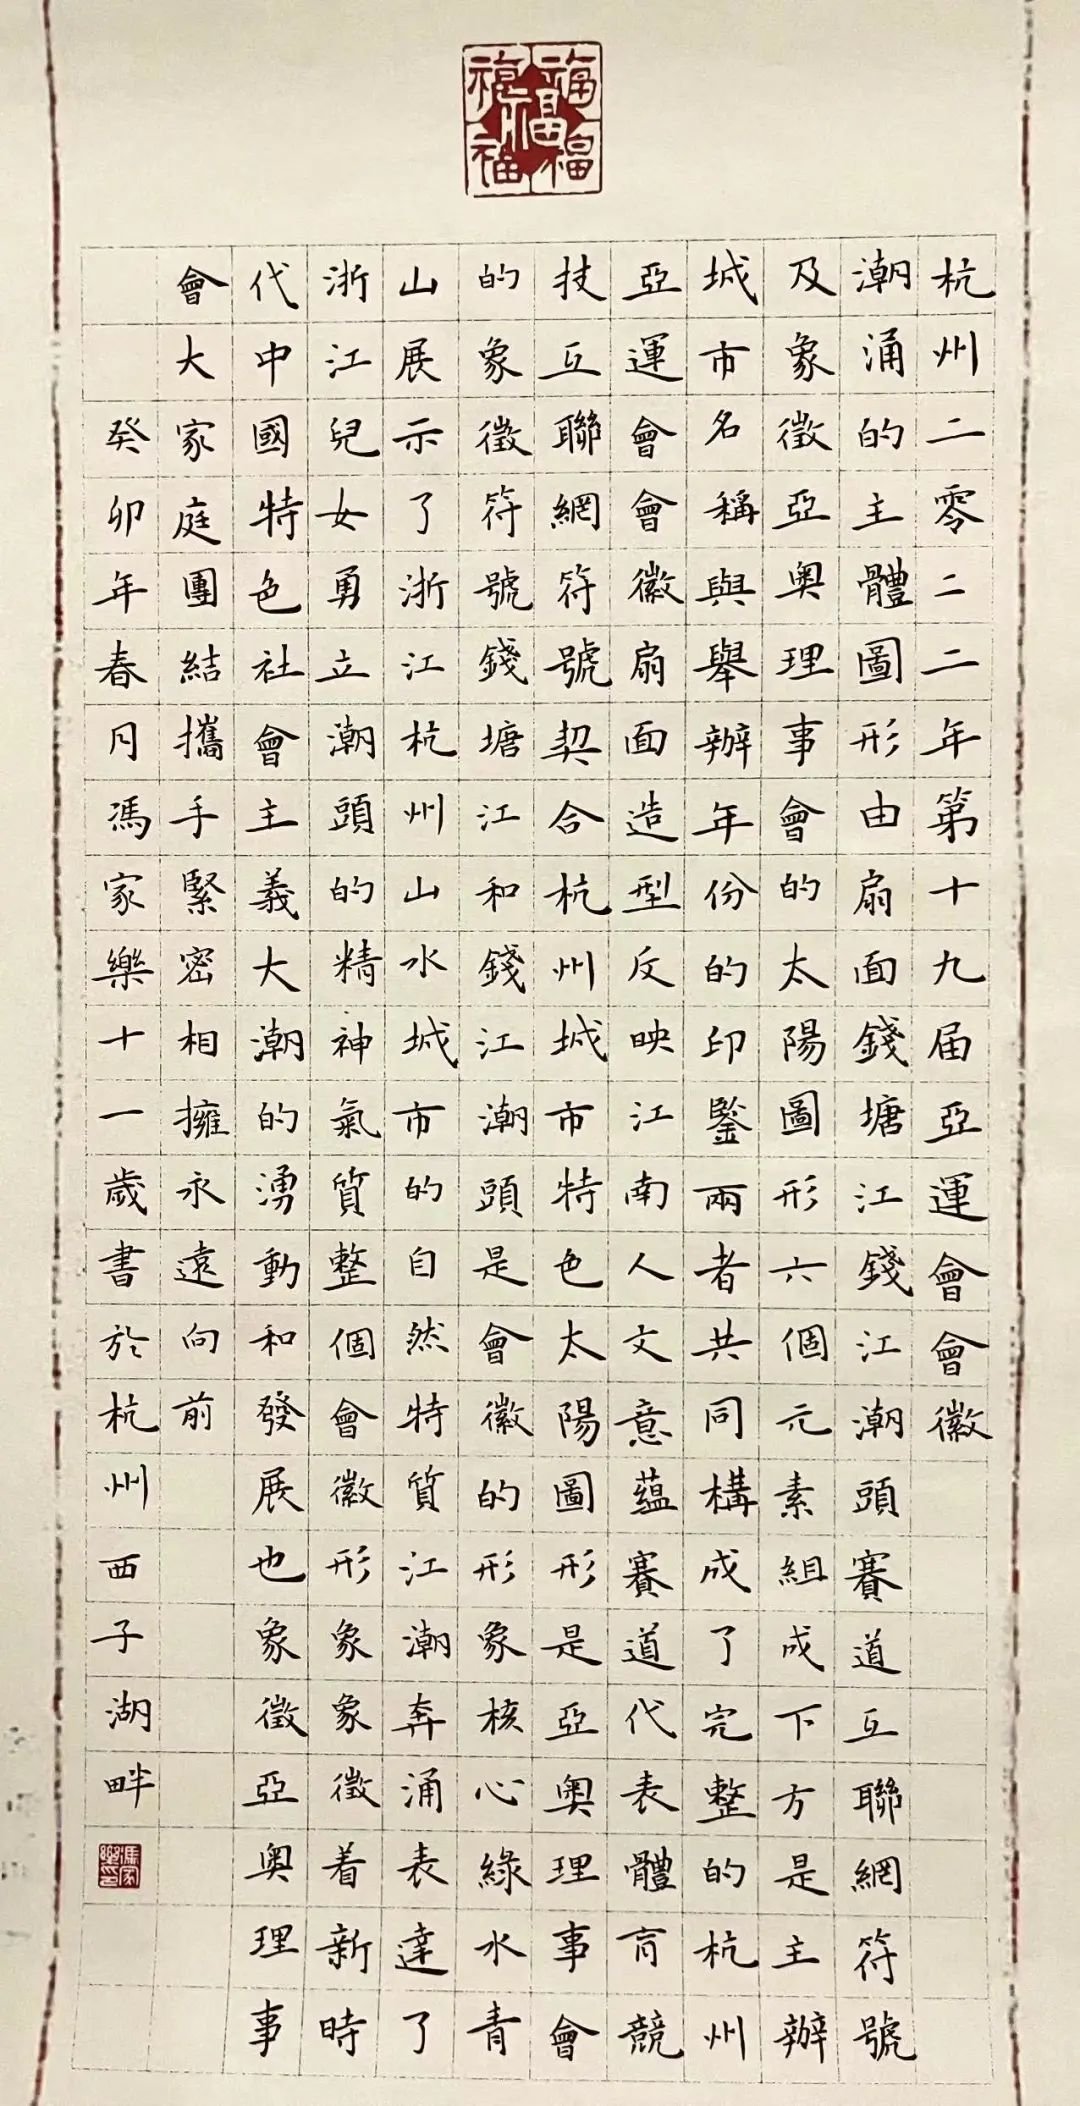 福福福福福
杭州二零二二年第十九届亞運會會徽
潮涌的主體圖形由扇面錢塘江錢江潮頭賽道互聯網符號
及象徵亞奧理事會的太陽圖形六個元素組成下方是主辦
城市名稱與舉辦年份的印鑒兩者共同構成了完整的杭州
亞運會會徽扇面造型反映江南人文意蘊賽道代表體育競
技互聯網符號契合杭州城市特色太陽圖形是亞奧理事會
的象徵符號錢塘江和錢江潮頭是會徽的形象核心綠水青
山展示了浙江杭州山水城市的自然特質江潮奔涌表達了
浙江兒女勇立潮頭的精神氣質整個會徽形象象徵着新時
代中國特色社會主義大潮的湧動和發展也象徵亞奧理事
會大家庭團結攜手緊密相擁永遠向前
癸卯年春月馮家樂十一歲書於杭州西子湖畔
馮家樂印